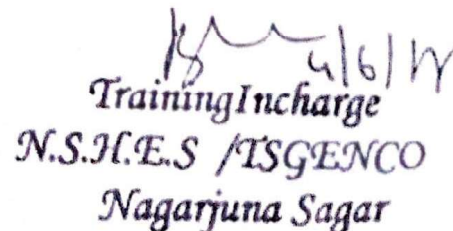 TrainingIncharge
N.S.H.E.S /TSGENCO
Nagarjuna Sagar